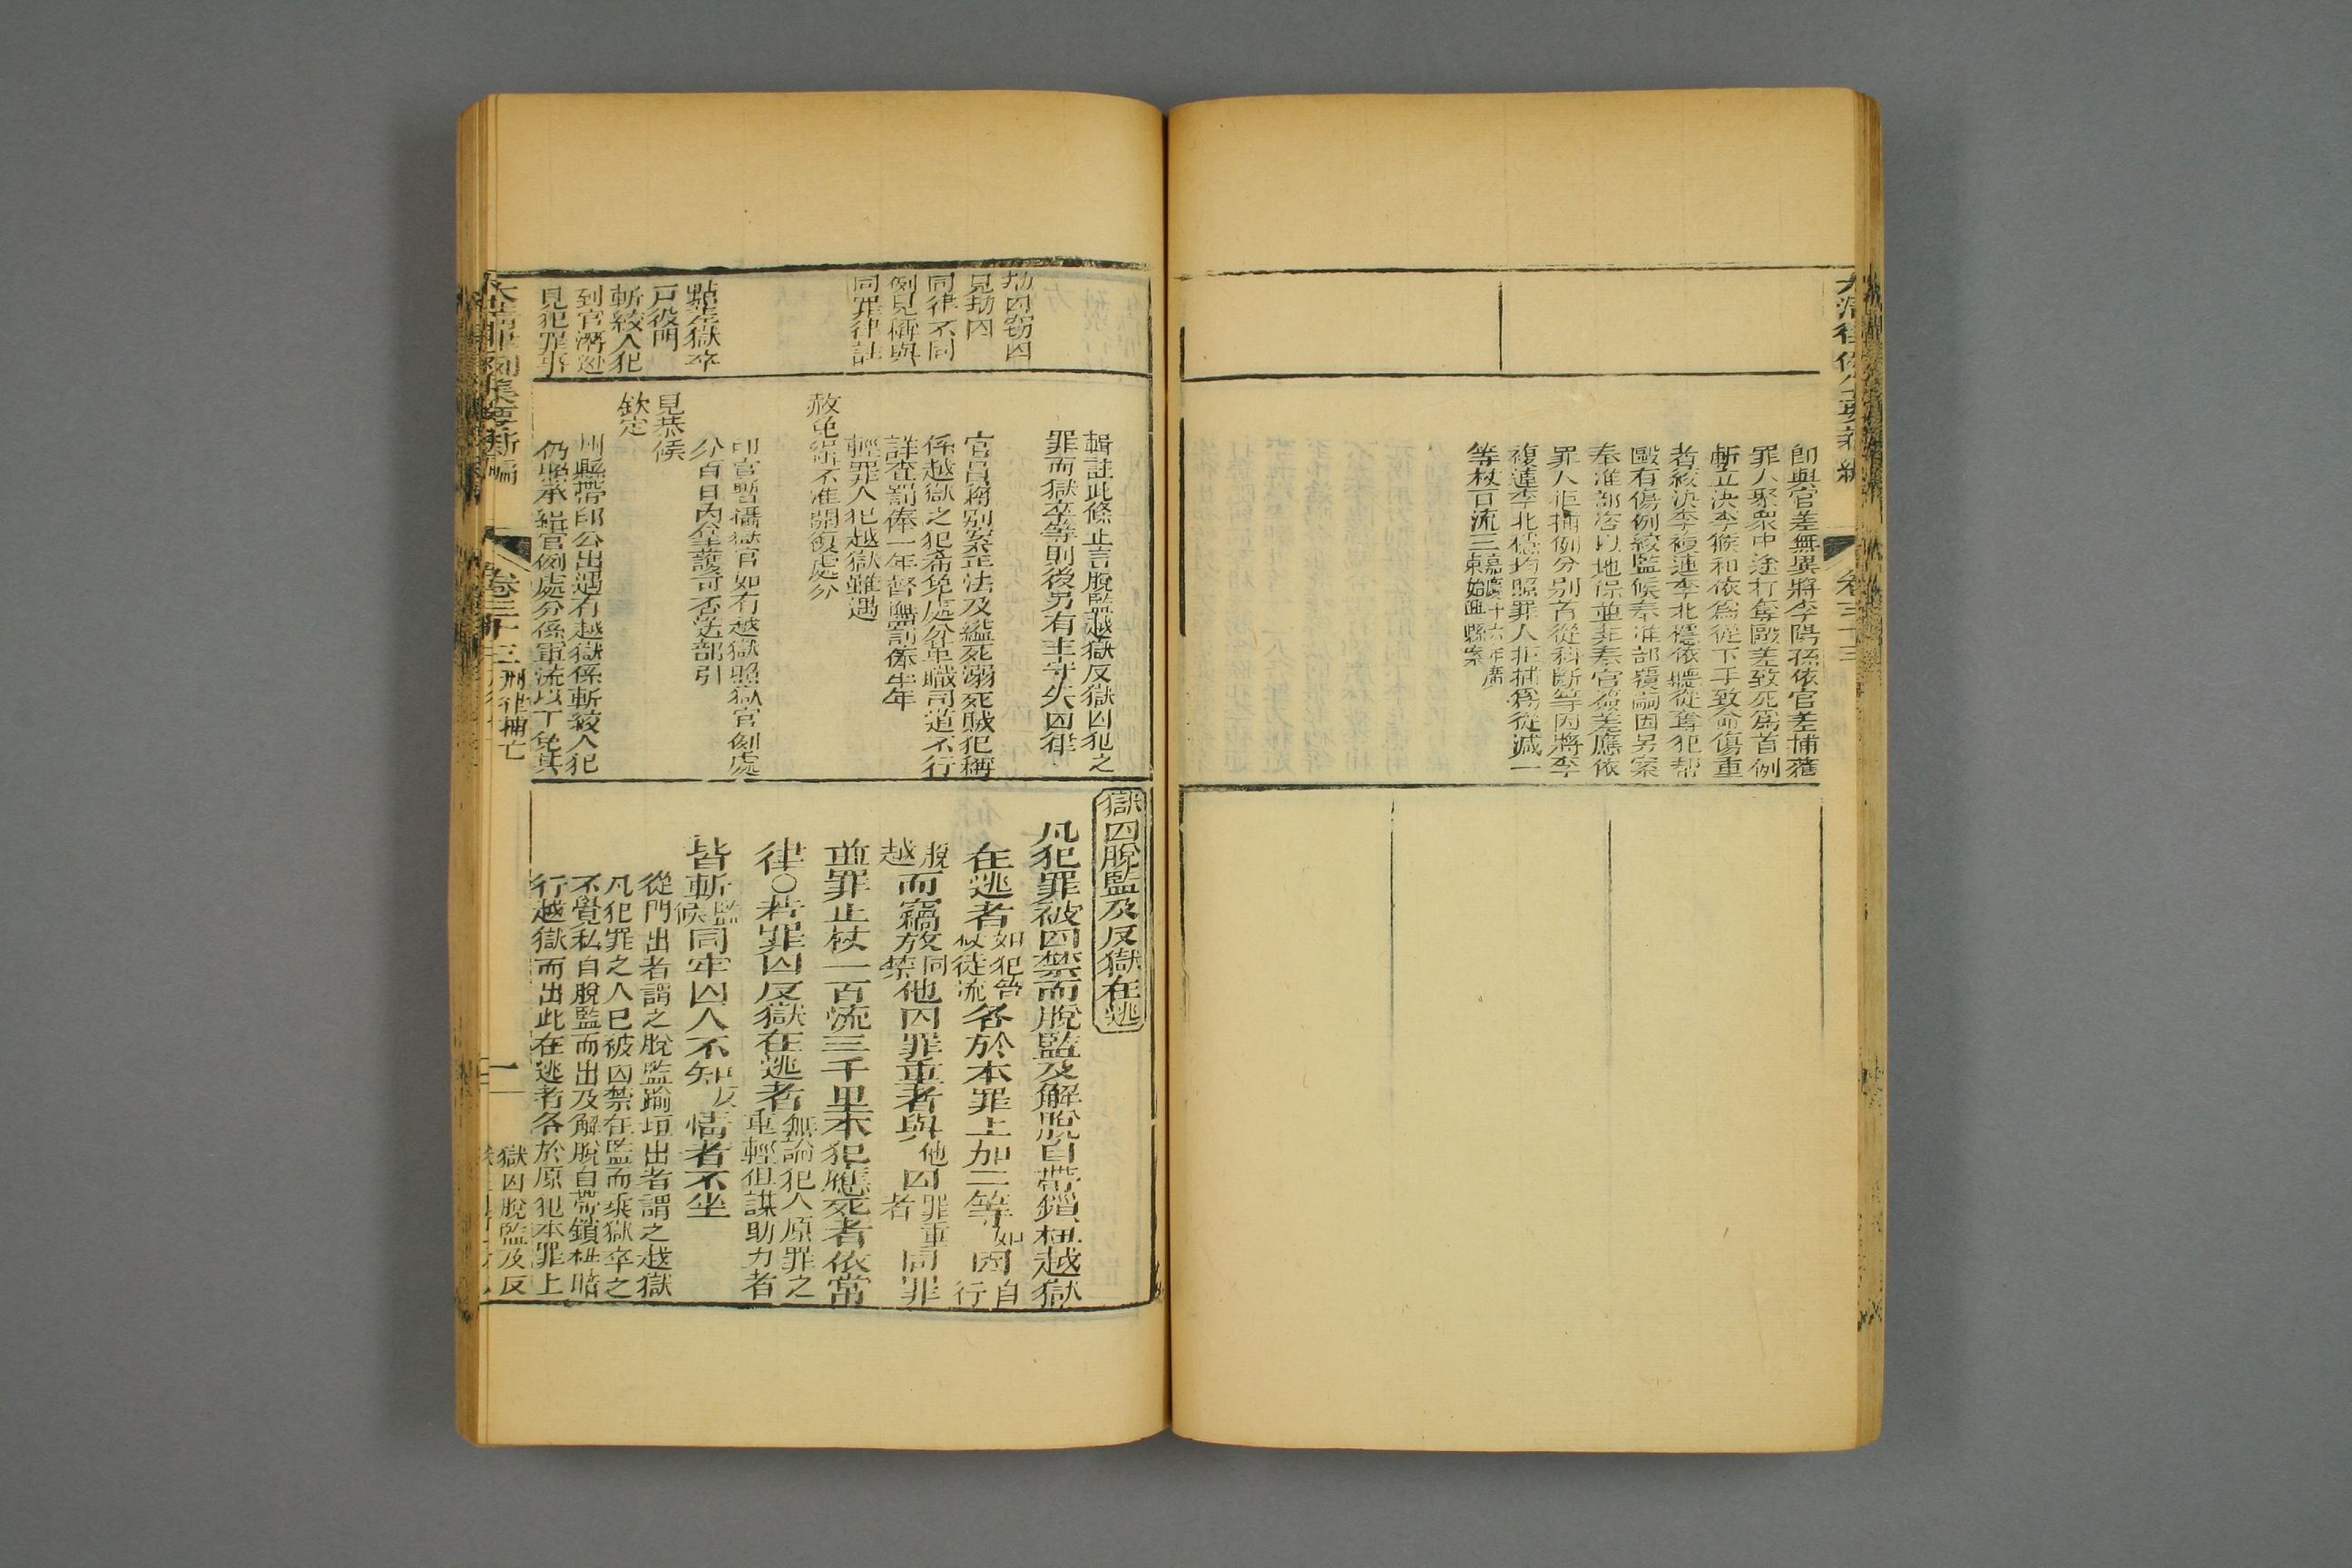 即與官差無異將李陽孫依官差捕獲
罪人聚眾中途打奪毆差致死為首例
斬立決李猴和依為從下手致命傷重
者絞決李複連李北穩依聽從奪犯幫
毆有傷例絞監候奉准部覆嗣因另案
奉准部咨以地保並非奉官簽差應依
罪人拒捕例分別首從科斷等因將李
複連李北穩均照罪人拒捕為從減一
等杖百流三嘉慶十六年廣
東始興縣案
卷三十三
劫囚竊囚
見劫囚
同律不同
例見稱與
同罪律註
點差獄卒
戶役門
斬絞人犯
到官潛逃
見犯罪事
輯註此條止言脫監越獄反獄囚犯之
罪而獄卒等則後另有主守失囚律
官員將別案正法及縊死溺死賊犯稱
係越獄之犯希免處分革職司道不行
詳查罰俸一年督撫罰俸半年
輕罪人犯越獄雖遇
赦免罪不准開復處分
印官暫攝獄官如有越獄照獄官例處
分百日內全獲可否送部引
見恭候
欽定
州縣帶印公出遇有越獄係斬絞人犯
仍照承緝官例處分係軍流以下免其
獄囚脫監及反獄在逃
凡犯罪被囚禁而脫監及解脫自帶鎖杻越獄
在逃者如犯笞
杖徒流各於本罪上加二等如因自
行
脫
越而竊放同
禁他囚罪重者與他囚罪重
者同罪
並罪止杖一百流三千里本犯應死者依常
律○若罪囚反獄在逃者無論犯人原罪之
重輕但謀助力者
皆斬監
候同牢囚人不知反情者不坐
從門出者謂之脫監踰垣出者謂之越獄
凡犯罪之人已被囚禁在監而乘獄卒之
不覺私自脫監而出及解脫自帶鎖杻暗
行越獄而出此在逃者各於原犯本罪上
卷三十三 刑律捕亡
一
獄囚脫監及反